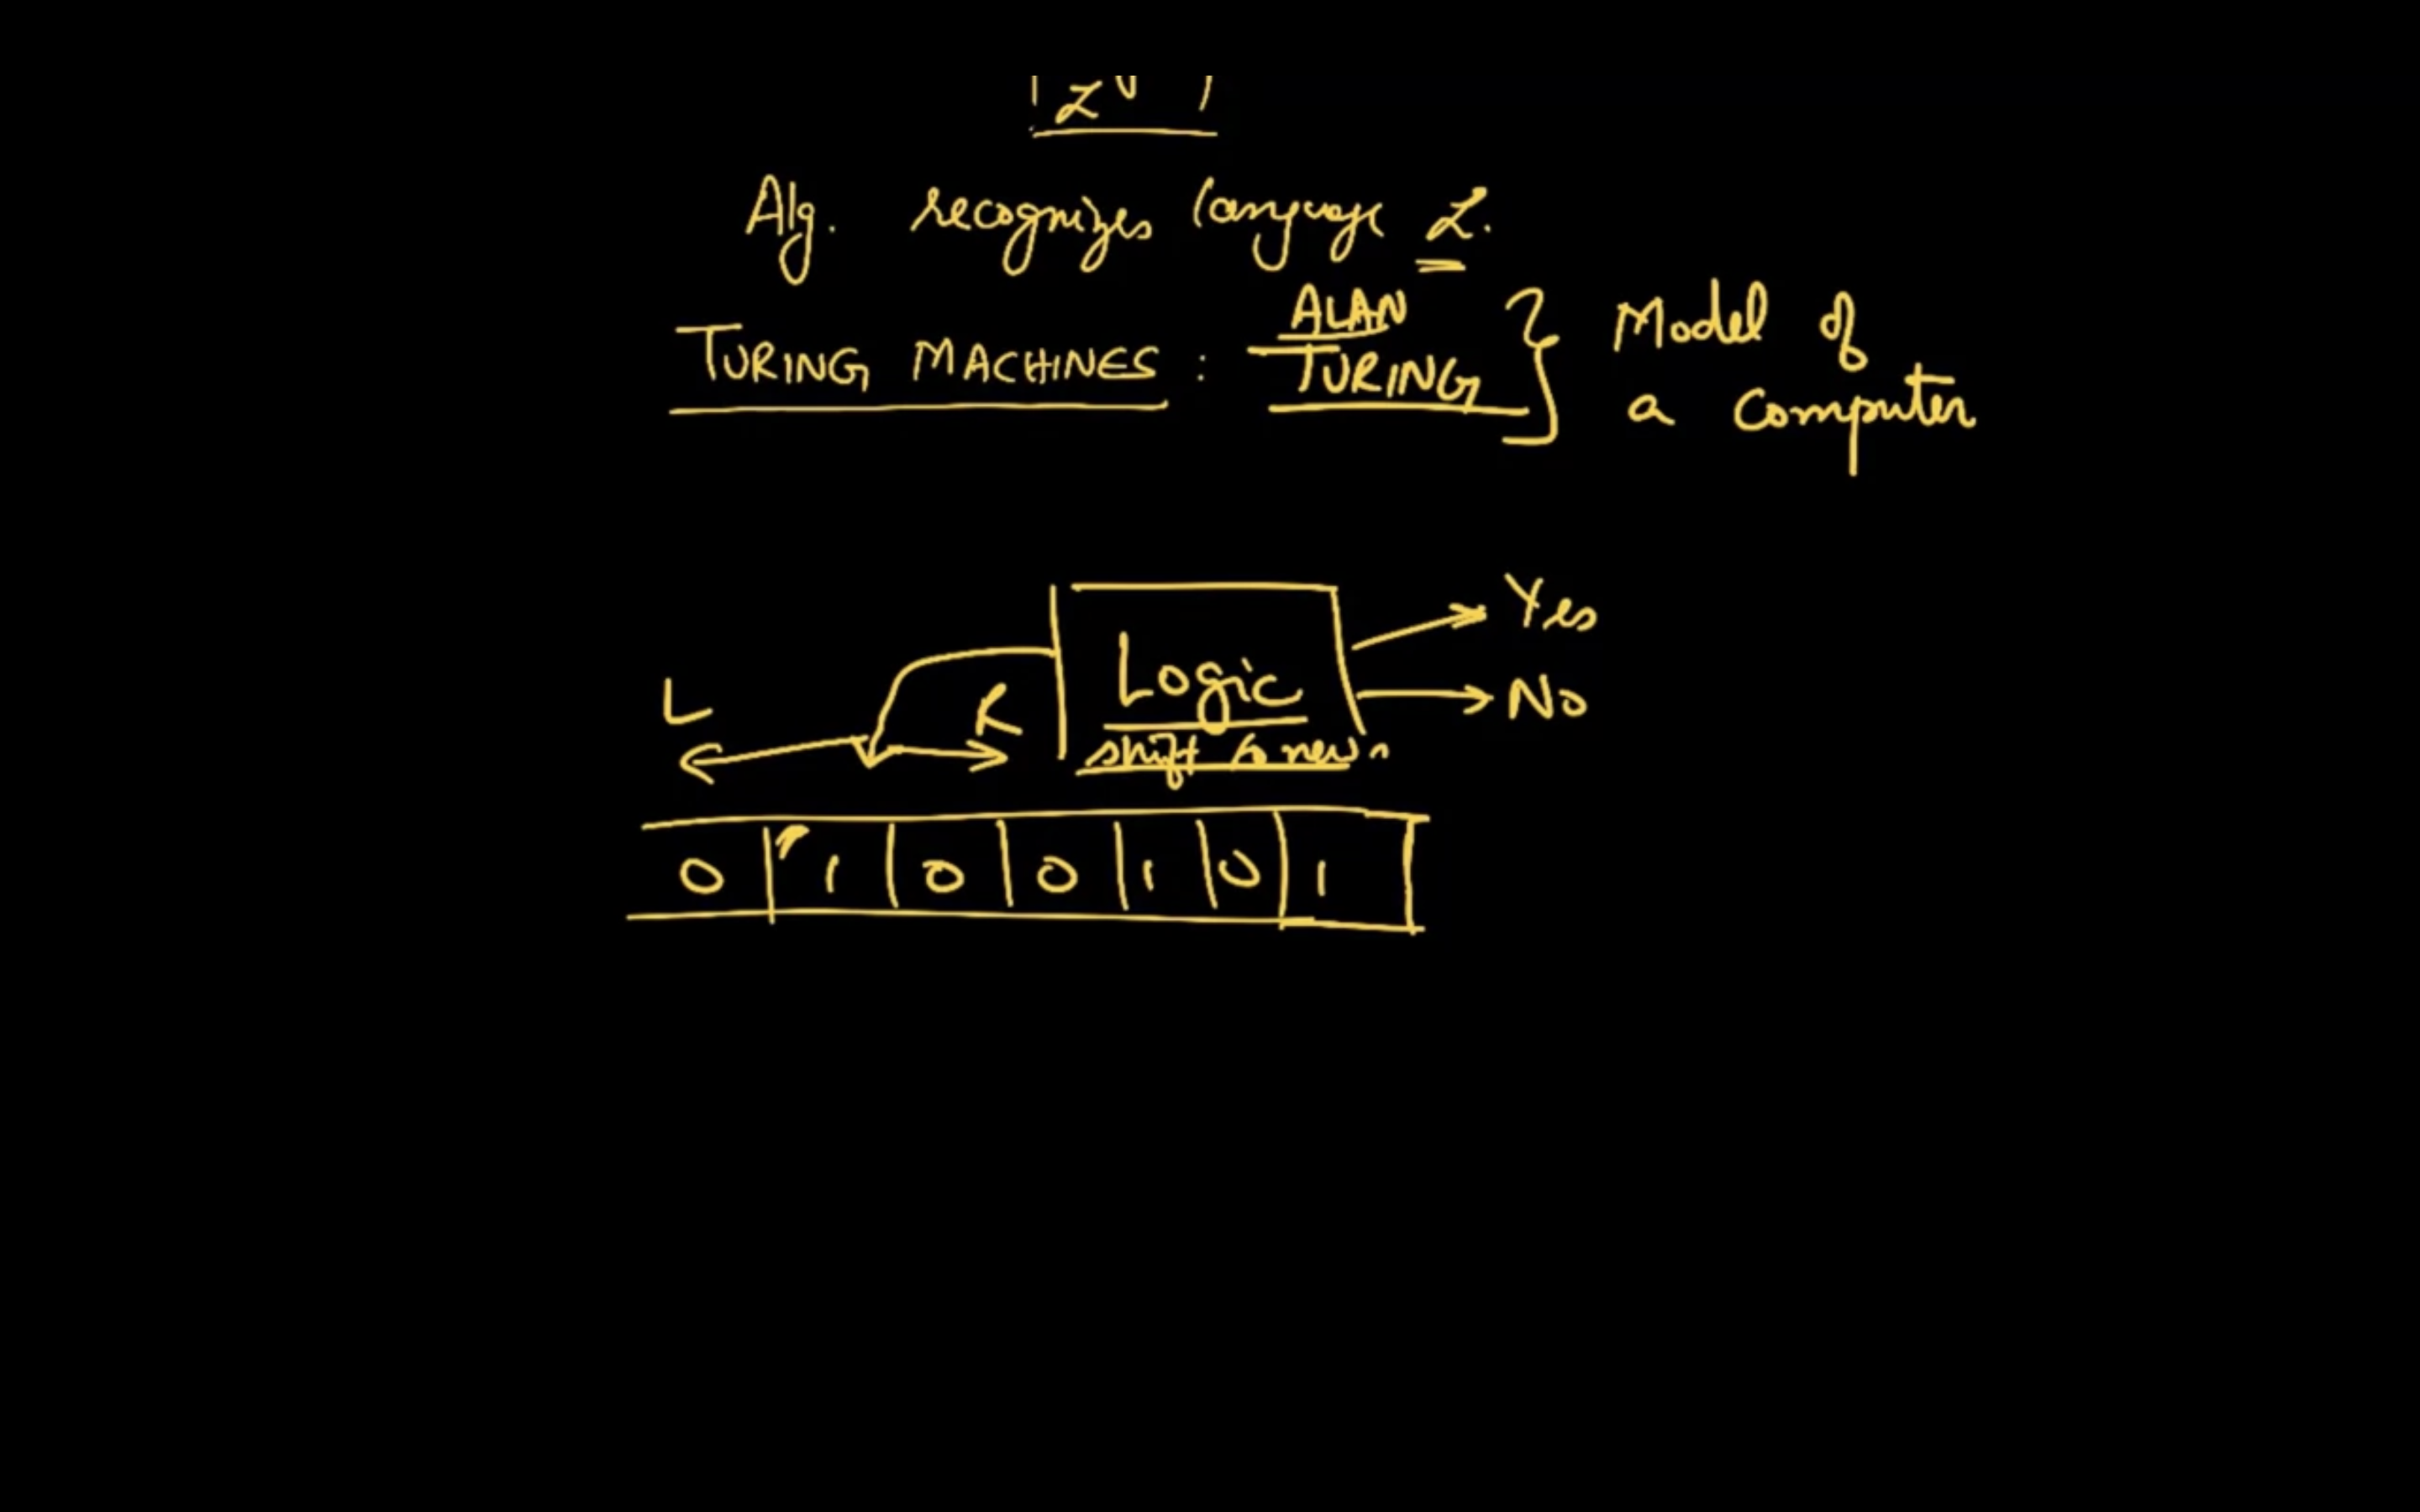 Alg. recognizes language L.
TURING MACHINES : ALAN TURING } Model of a computer
Logic
shift to new
L
R
Yes
No
0 1 0 0 1 0 1